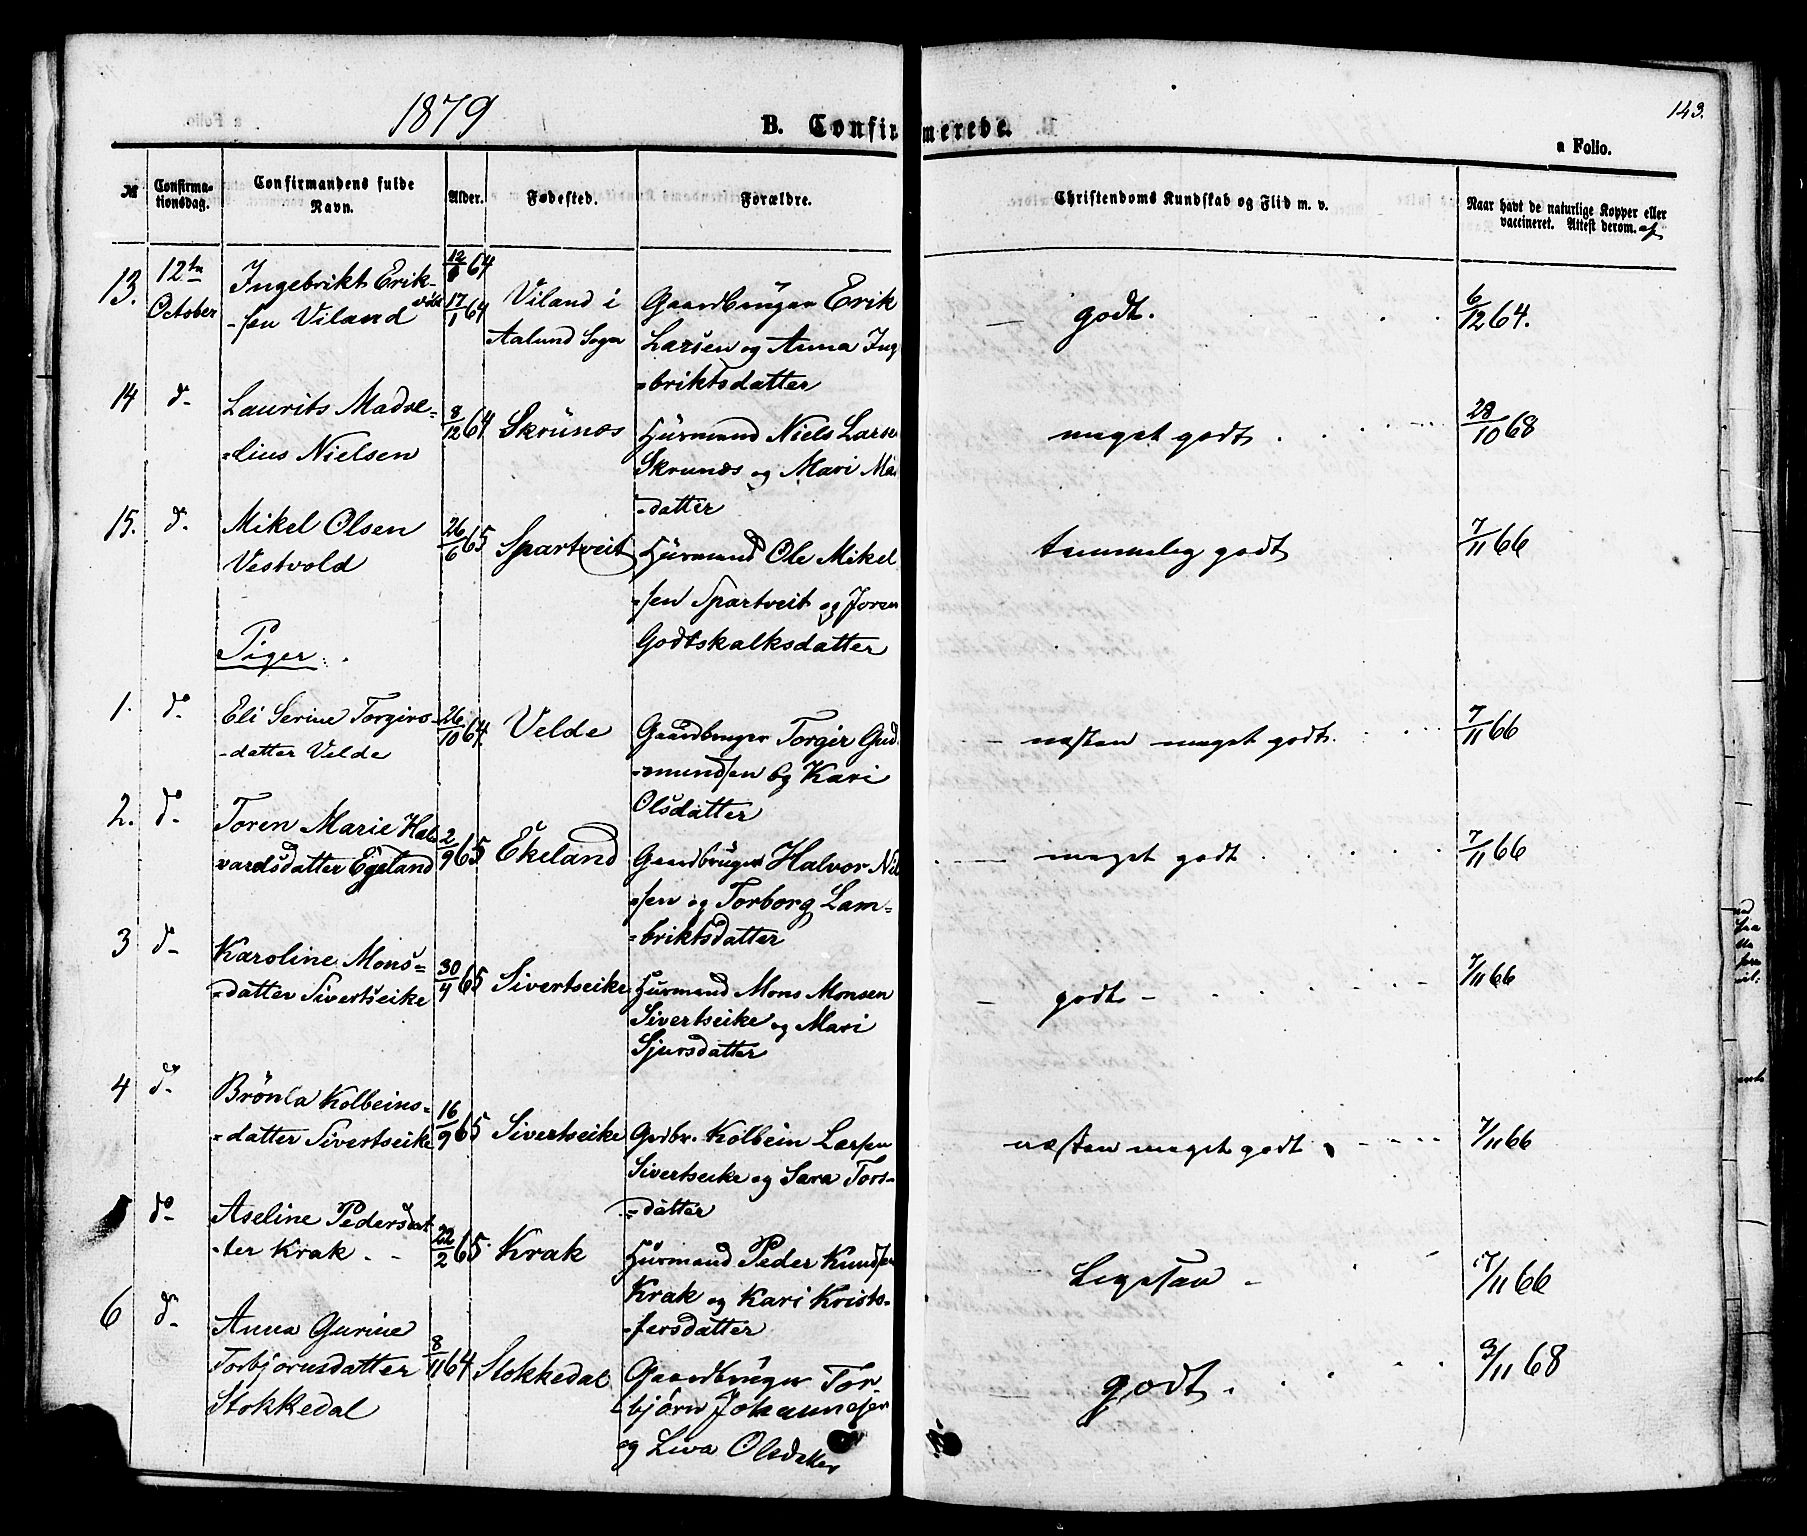 143.
1879
B. Confirmerede.
a Folio.
№ Confirmationsdag. Confirmandens fulde Navn. Alder. Fødested. Forældre. Christendoms Kundskab og Flid m. v. Naar havt de naturlige Kopper eller vaccineret. Attest derom. af
13. 12te October
Ingebrikt Erik-
-sen Viland
17/1 64
Viland i
Aalund Sogn
Gaardbruger Erik
Larsen og Anna Ing
=briktsdatter
godt.
6/12 64.
14 d-
Laurits Madse=
=lius Nielsen
8/12 64
Skrunes
Husmand Niels Larse
Skrunes og Mari
=datter
meget godt
28/10 68
15. d-
Mikel Olsen
Vestvold
26/6 65
Spartveit
Husmand Ole Mikel
=sen Spartveit og Joren
Godtskalksdatter
temmelig godt
7/11 66
Piger.
1. d-
Eli Serine Torgirs-
-datter Velde
26/10 64.
Velde
Gaardbruger Torgir Gud
=mundsen og Kari
Olsdatter
næsten meget godt.
7/11 66
2. d-
Toren Marie Hal
vardsdatter Egeland
2/9 65
Ekeland
Gaardbruger Halvor Nil
=sen og Torborg Lam=
=briktsdatter
meget godt
7/11 66
3 d-
Karoline Mons=
=datter Sivertseike
30/4 65
Sivertseike
Husmand Mons Monsen
Sivertseike og Mari
Sjursdatter
godt -
7/11 66
4 d-
Brønla Kolbeins=
=datter Sivertseike
16/9 65
Sivertseike
Grdbr. Kolbein Larsen
Sivertseike og Sara Tors-
=datter
næsten meget godt
7/11 66
5 d-
Aseline Pedersdat
-ter Krak. -
22/2 65
Krak
Husmand Peder Knudsen
Krak og Kari Krist
=fersdatter
Ligesaa -
7/11 66
6 d-
Anna Gurine
Torbjornsdatter
Stokkedal
8/11 64
Stokkedal
Gaardbruger Tor-
=bjørn Johannesen
og Liva Olsdatter
godt.
3/11 68